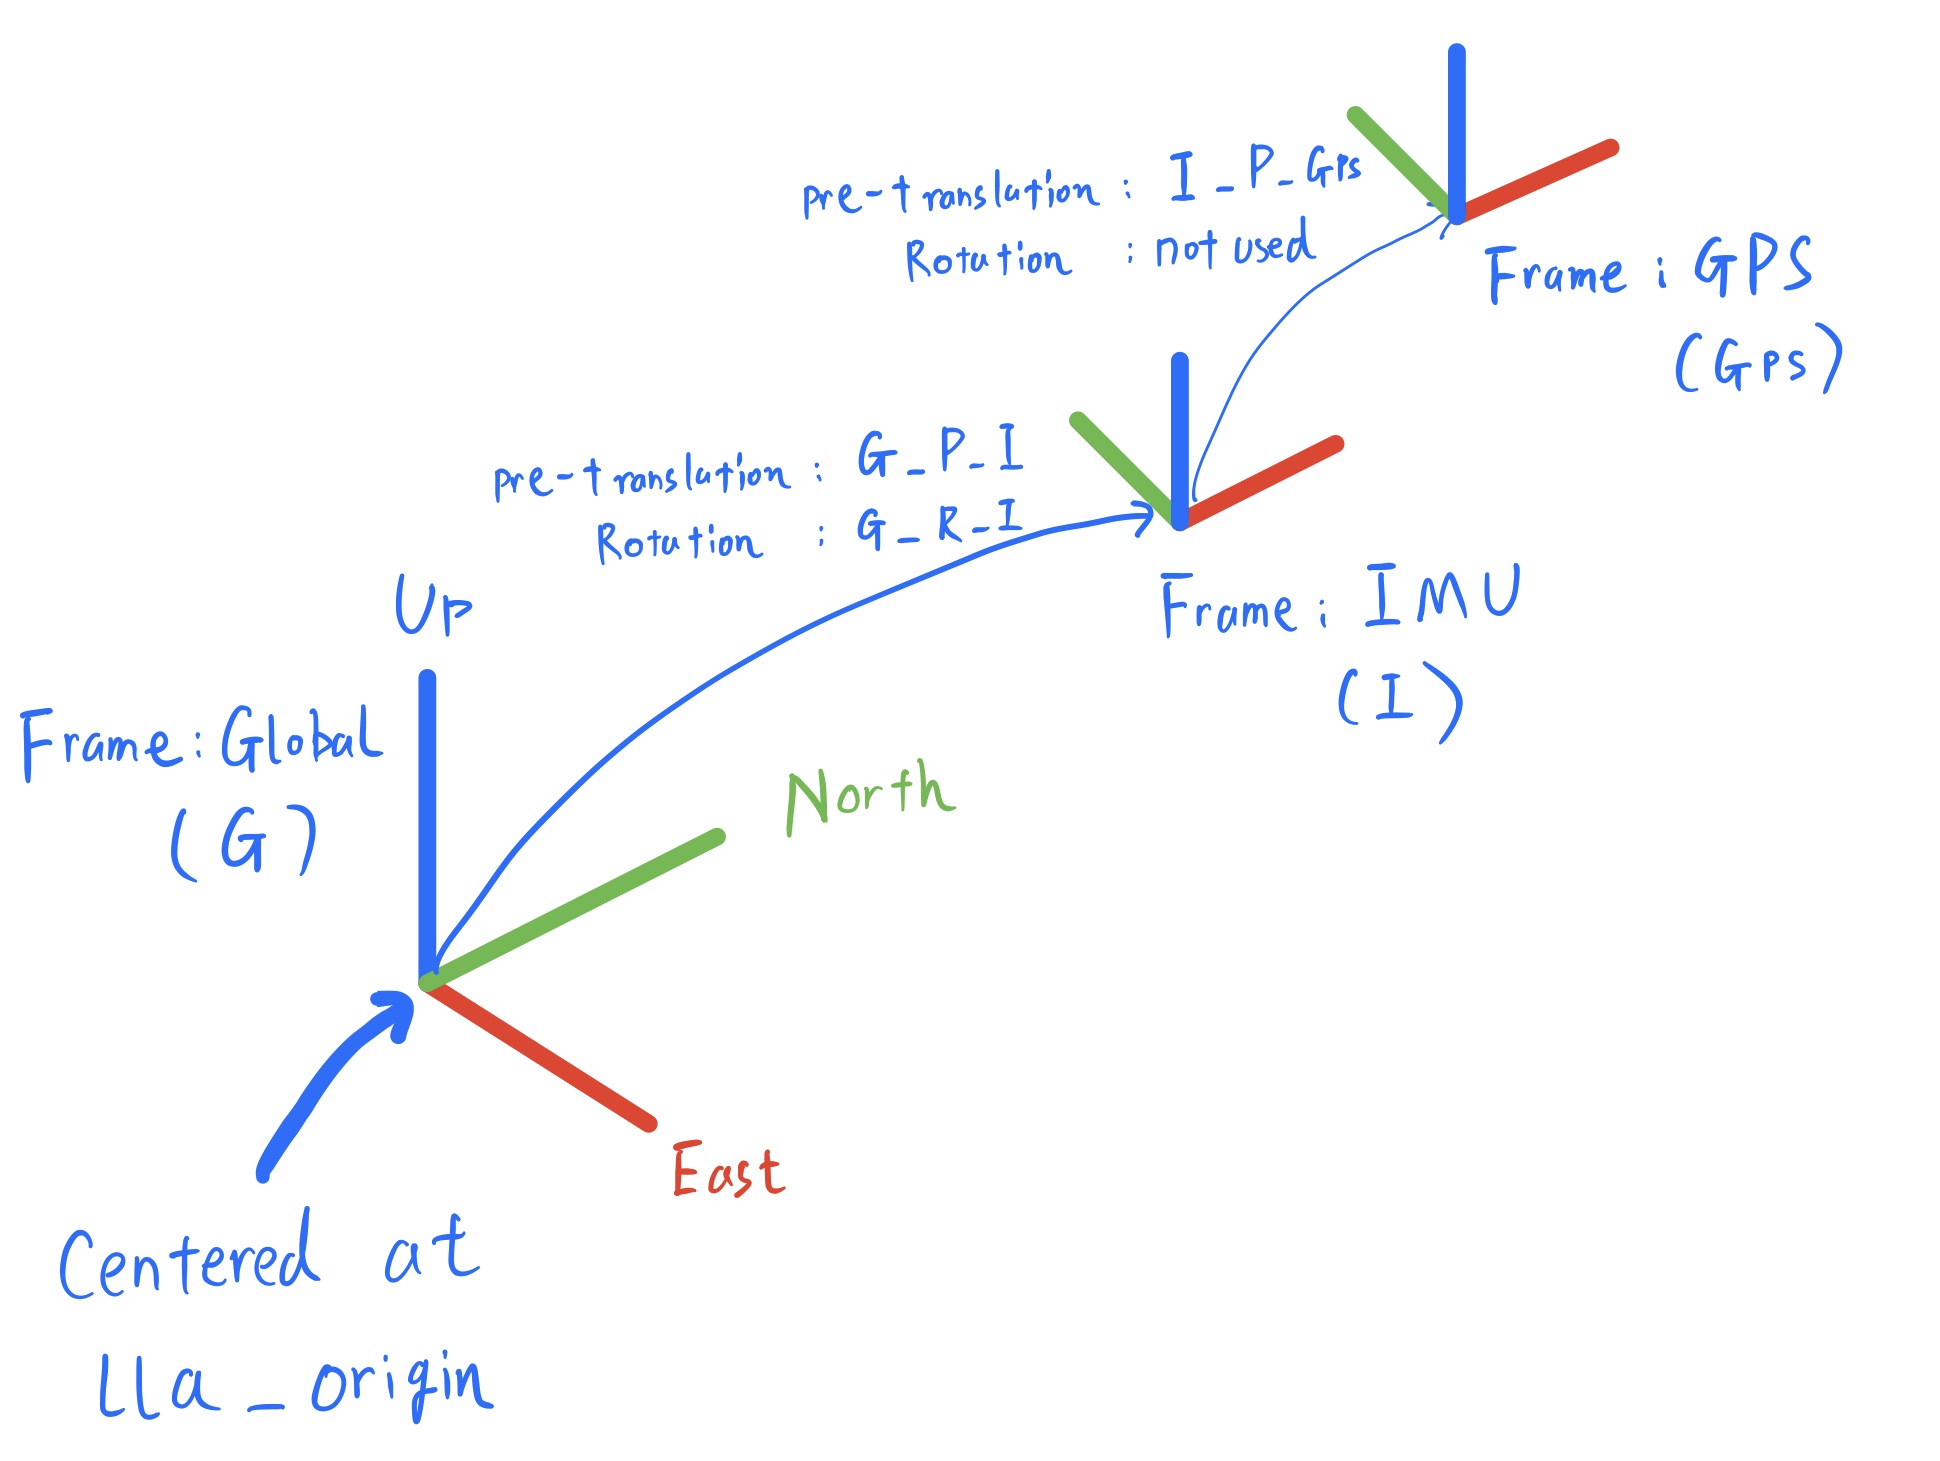 pre-translation : I_P_Gps
Rotation : not used
Frame : GPS
(Gps)
pre-translation : G_P_I
Rotation : G_R_I
Frame : IMU
(I)
Up
Frame : Global
(G)
North
East
Centered at
lla_origin